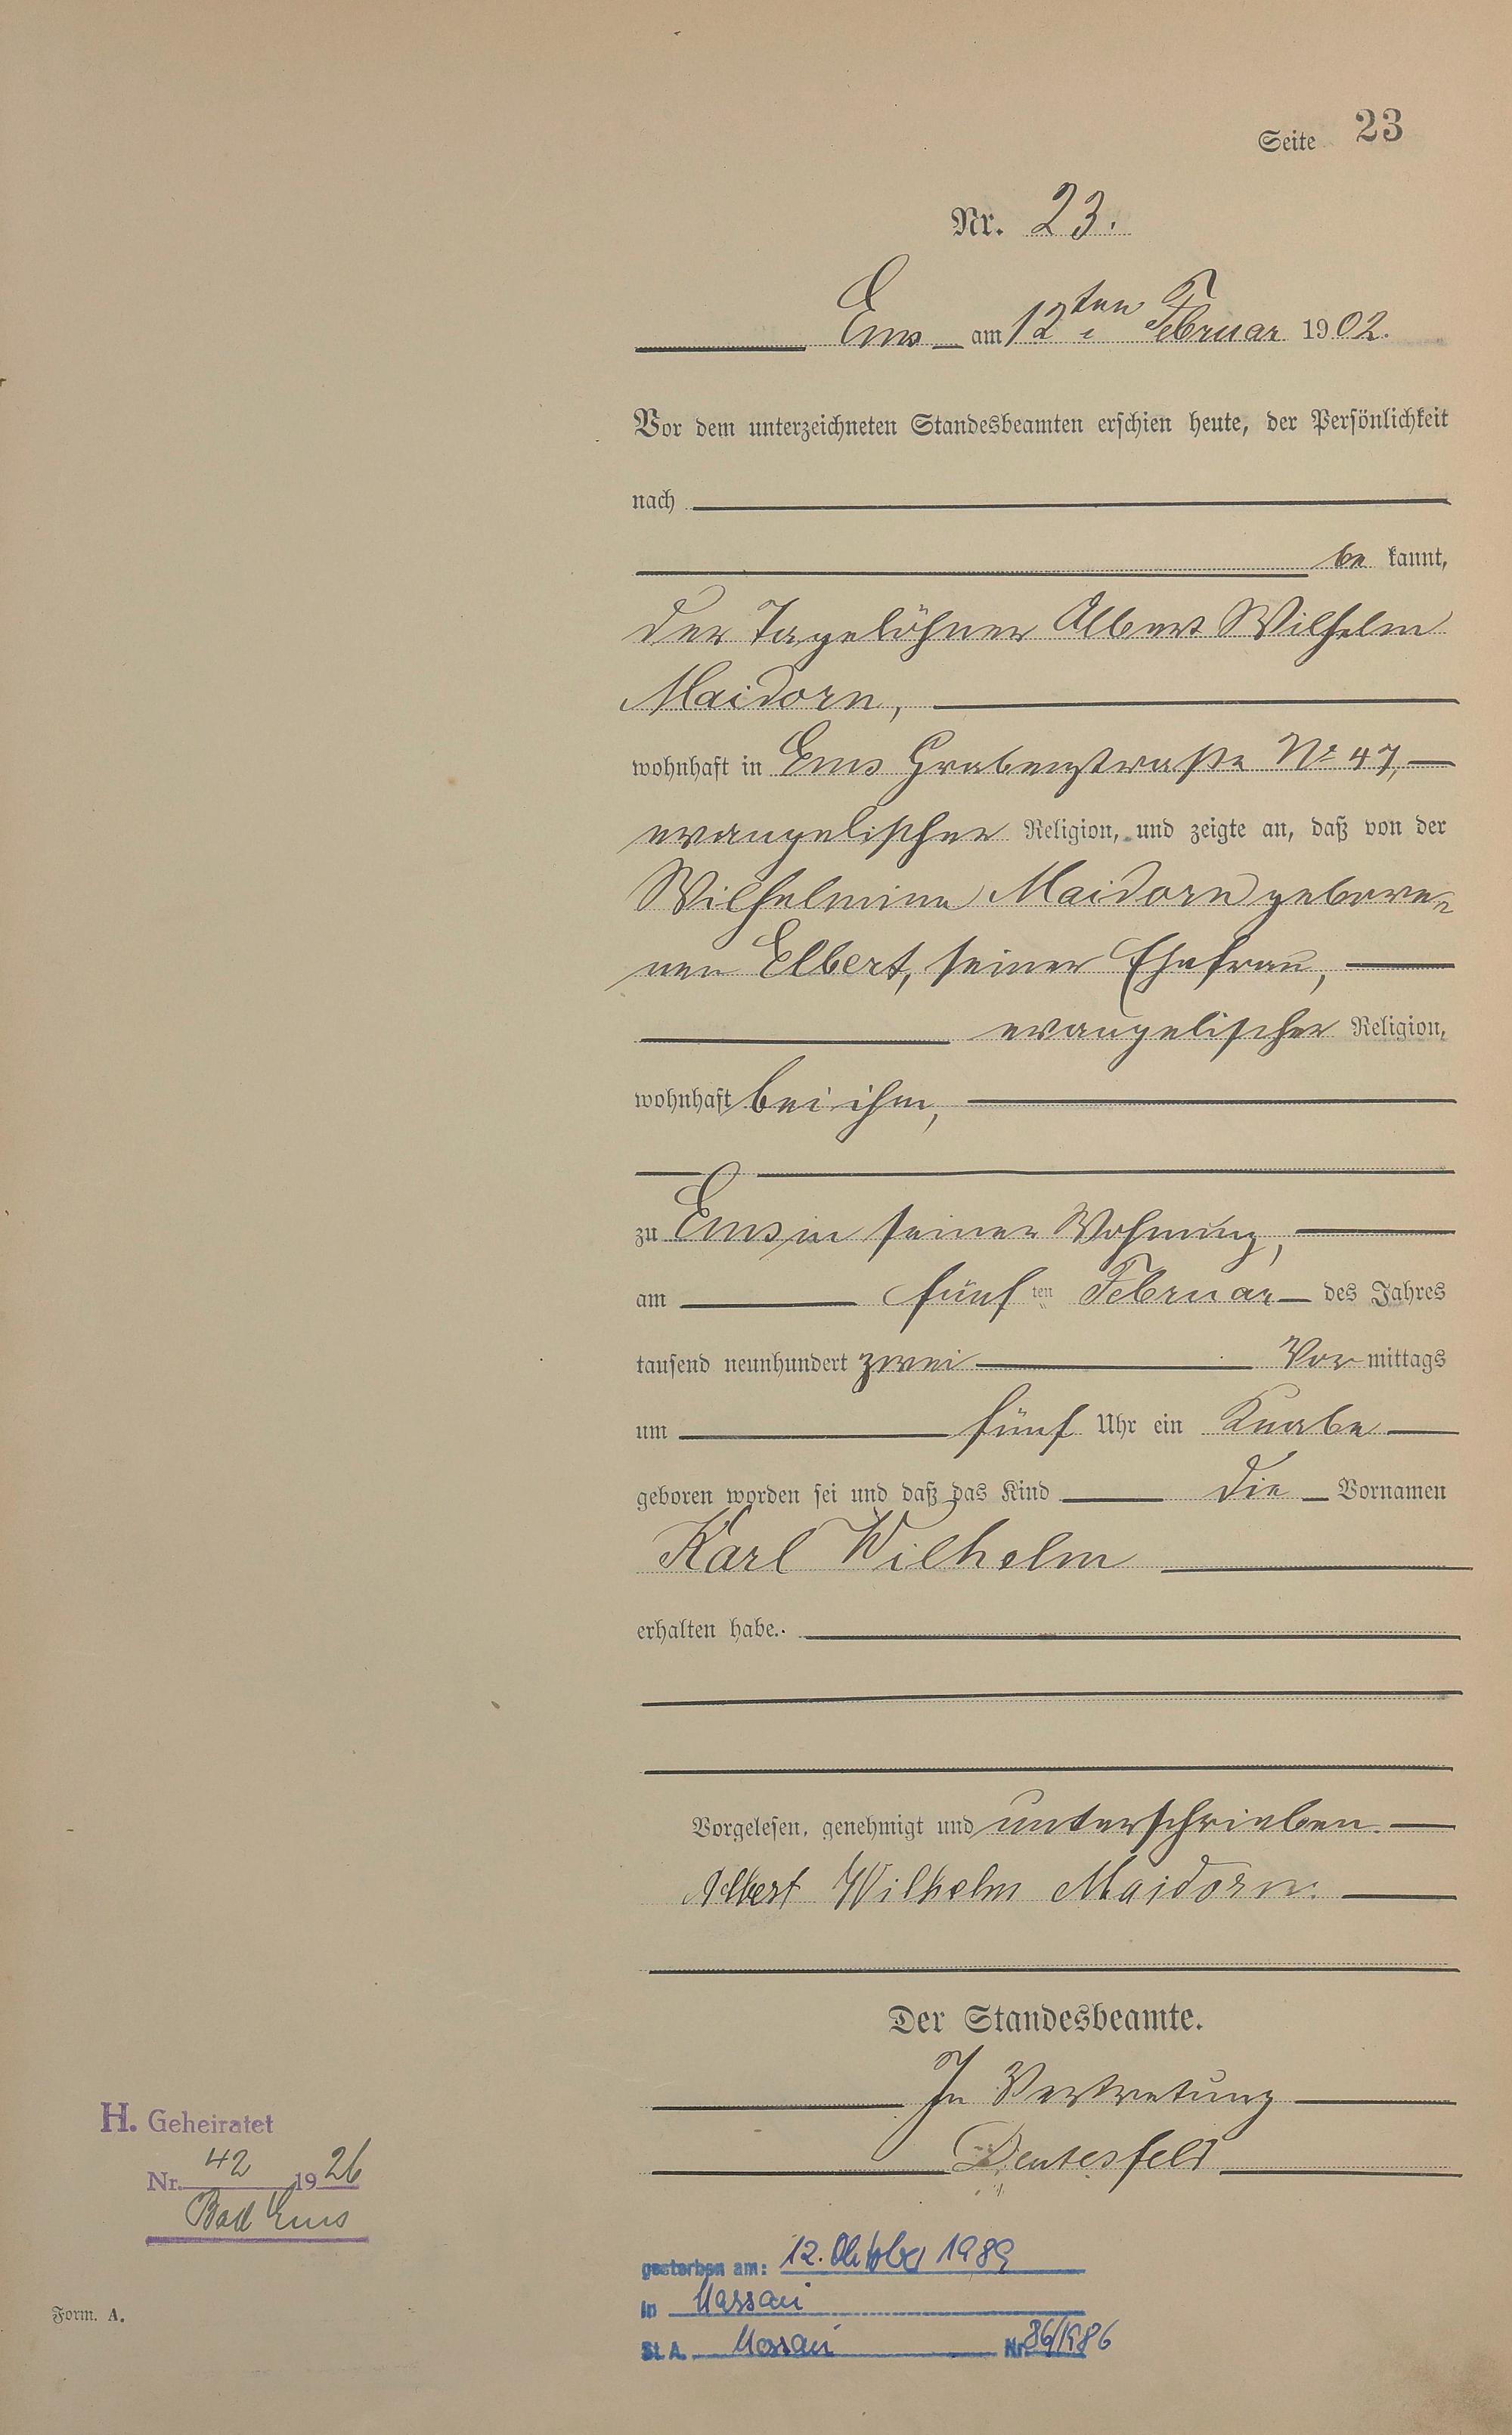 Seite 23
Nr. 23.
Ems am 12ten Februar 1902.
Vor dem unterzeichneten Standesbeamten erschien heute, der Persönlichkeit
nach
be kannt,
der Tagelöhner Albert Wilhelm
Maidorn,
wohnhaft in Ems Grabenstraße No 47,
evangelischer Religion, und zeigte an, daß von der
Wilhelmine Maidorn gebore-
nen Elbert, seiner Ehefrau,
evangelischer Religion,
wohnhaft bei ihm,
zu Ems in seiner Wohnung,
am fünften Februar des Jahres
tausend neunhundert zwei Vormittags
um fünf Uhr ein Knabe
geboren worden sei und daß das Kind die Vornamen
Karl Wilhelm
erhalten habe.
Vorgelesen, genehmigt und unterschrieben.
Albert Wilhelm Maidorn.
Der Standesbeamte.
In Vertretung
Deutesfeld
H. Geheiratet
Nr. 42 1926
Bad Ems
gestorben am: 12. Oktober 1989
in Nassau
St. A. Nassau Nr. 86/1986
Form. A.